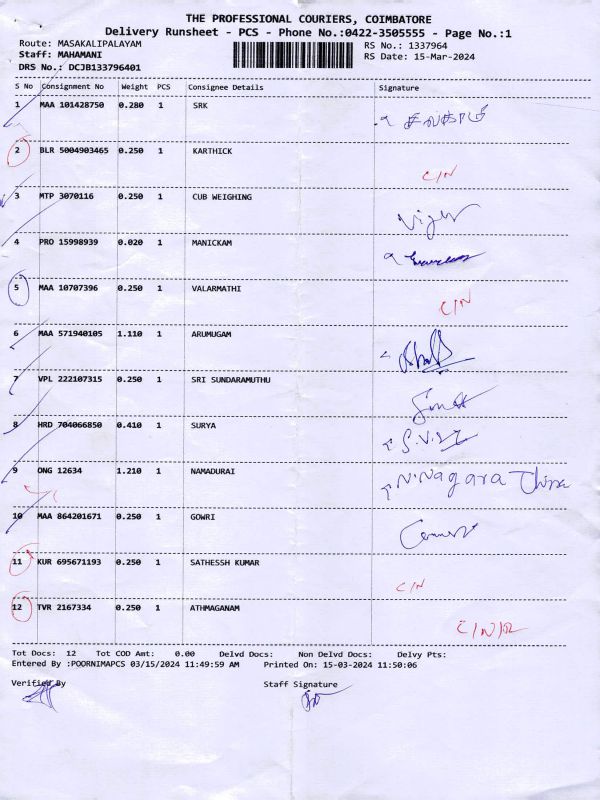 THE PROFESSIONAL COURIERS, COIMBATORE
Delivery Runsheet - PCS - Phone No.:0422-3505555 - Page No.:1
Route: MASAKALIPALAYAM RS No.: 1337964
Staff: MAHAMANI RS Date: 15-Mar-2024
DRS No.: DCJB133796401
S No Consignment No Weight PCS Consignee Details Signature
1 MAA 101428750 0.280 1 SRK
2 BLR 5004903465 0.250 1 KARTHICK C/N
3 MTP 3070116 0.250 1 CUB WEIGHING
4 PRO 15998939 0.020 1 MANICKAM
5 MAA 10707396 0.250 1 VALARMATHI C/N
6 MAA 571940105 1.110 1 ARUMUGAM
7 VPL 222107315 0.250 1 SRI SUNDARAMUTHU
8 HRD 704066850 0.410 1 SURYA
9 ONG 12634 1.210 1 NAMADURAI N.Nagara
10 MAA 864201671 0.250 1 GOWRI
11 KUR 695671193 0.250 1 SATHESSH KUMAR C/N
12 TVR 2167334 0.250 1 ATHMAGANAM C/N/R
Tot Docs: 12 Tot COD Amt: 0.00 Delvd Docs: Non Delvd Docs: Delvy Pts:
Entered By :POORNIMAPCS 03/15/2024 11:49:59 AM Printed On: 15-03-2024 11:50:06
Verified By Staff Signature